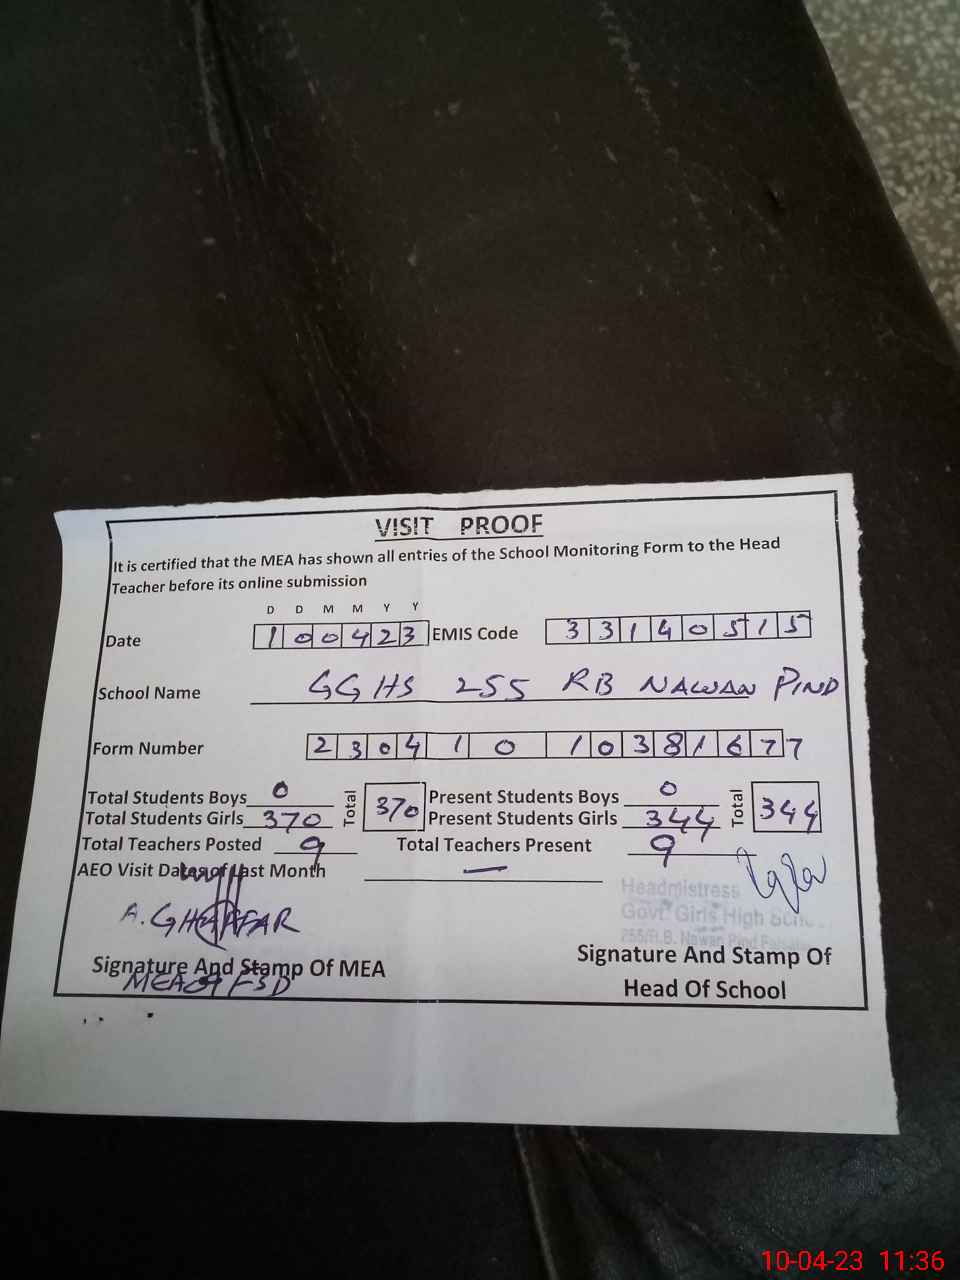 VISIT PROOF
It is certified that the MEA has shown all entries of the School Monitoring Form to the Head
Teacher before its online submission
D D M M Y Y
Date 100423 EMIS Code 33140515
School Name GGHS 255 RB NAWAN PIND
Form Number 2304 10 10381677
Total Students Boys 0 Total 370 Present Students Boys 0 Total 344
Total Students Girls 370 Present Students Girls 344
Total Teachers Posted 9 Total Teachers Present 9
AEO Visit Dates of Last Month —
Headmistress
A. GHAFFAR Govt. Girls High
255/R.B. Nawan Pind
Signature And Stamp Of MEA Signature And Stamp Of
Head Of School
10-04-23 11:36